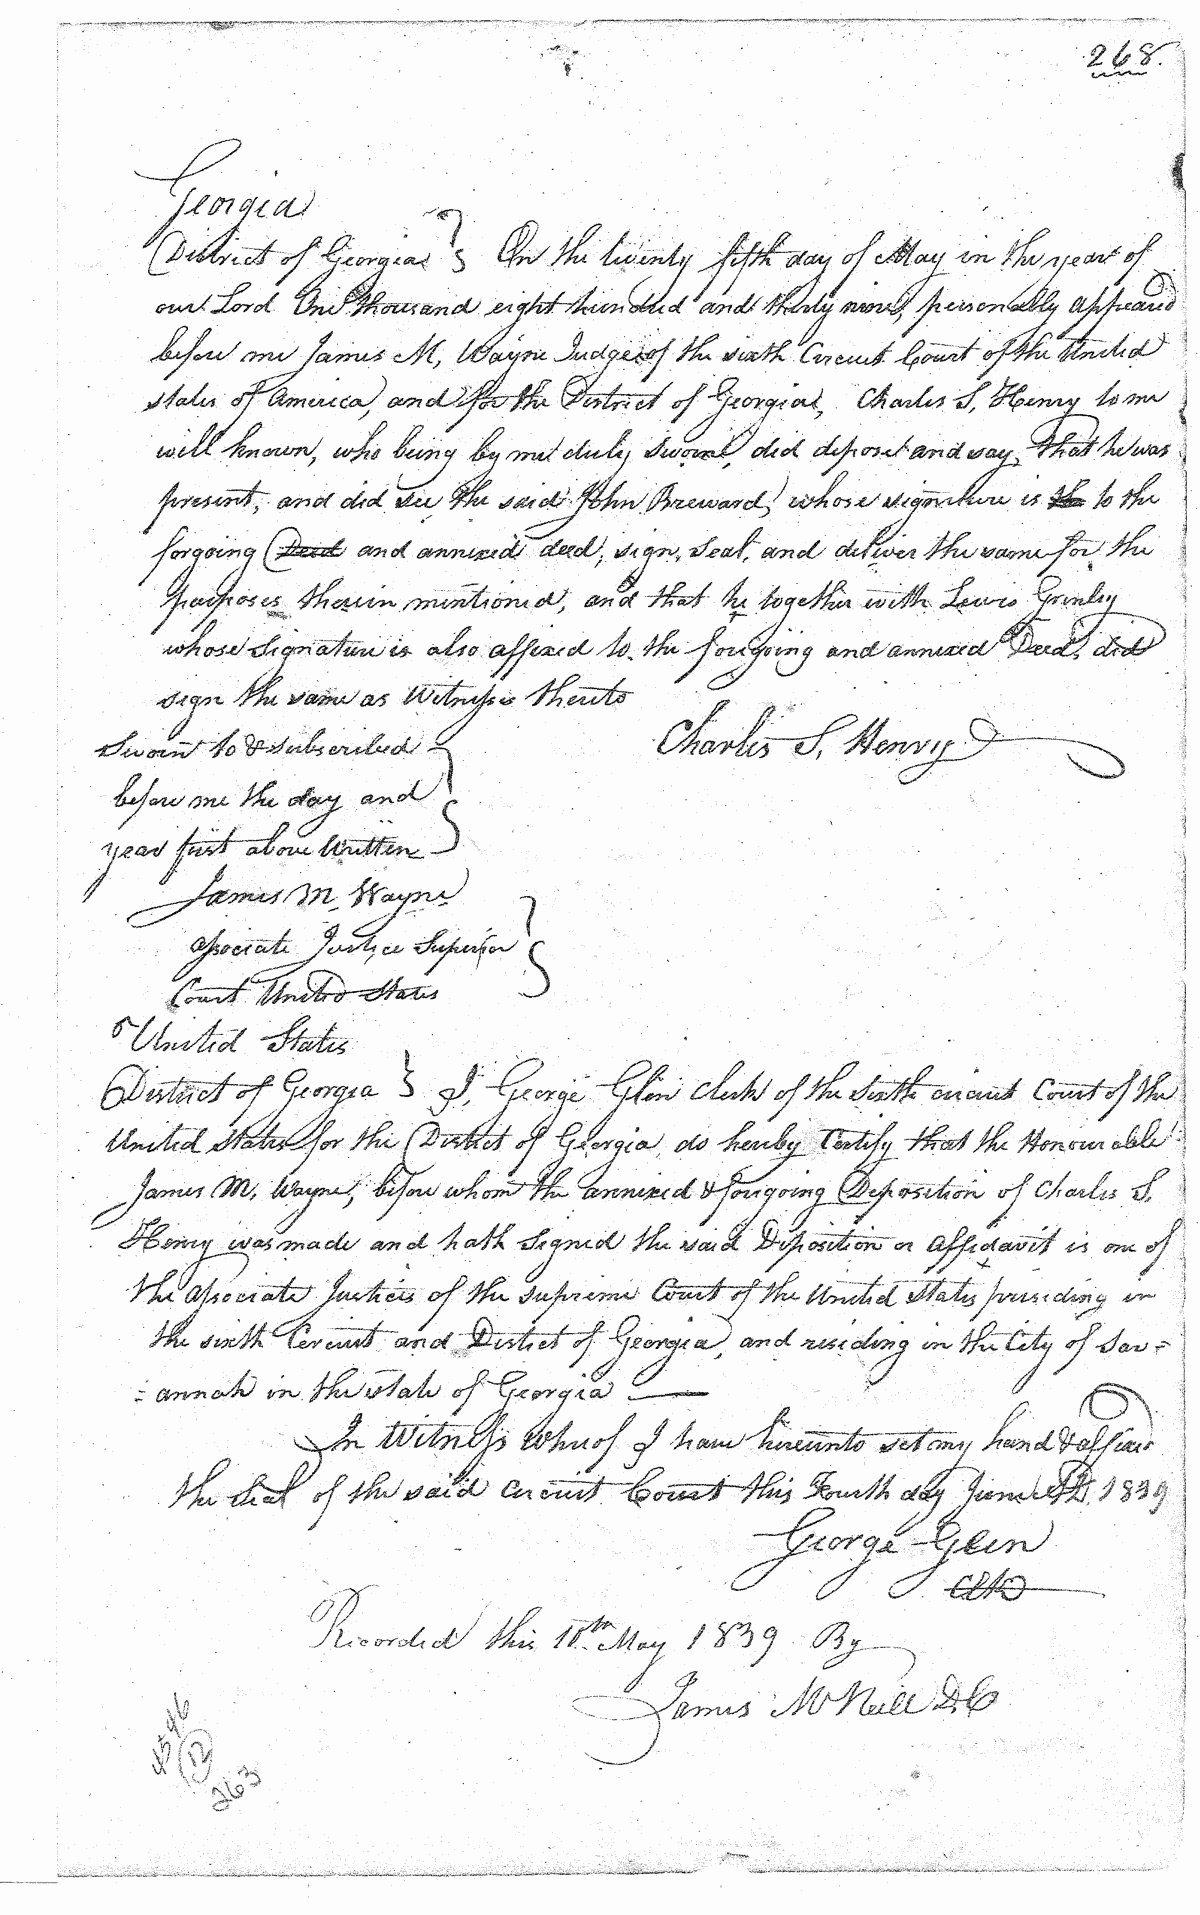 268.
Georgia
District of Georgia } On the twenty fifth day of May in the year of
our Lord One thousand eight hundred and thirty nine, personally appeared
before me James M, Wayne Judge of the sixth Circuit Court of the United
states of America, and for the District of Georgia, Charles S, Henry to me
well known, who being by me duly sworn, did depose and say, that he was
present, and did see the said John Breward, whose signature is the to the
forgoing Deed and annexed deed, sign, seal, and deliver the same for the
purposes therein mentioned, and that he together with Lewis Grinley
whose signature is also affixed to the foregoing and annexed Deed, did
sign the same as Witness thereto
Charles S, Henry
Sworn to & subscribed
before me the day and
year first above Written
James M, Wayne
associate Justice Superior
Court United States
United States
District of Georgia } I, George Glen Clerk of the Sixth circuit Court of the
United States for the District of Georgia, do hereby Certify that the Honourable
James M, Wayne, before whom the annexed & foregoing Deposition of Charles S,
Henry was made and hath signed the said Deposition or affidavit is one of
the associate Justices of the supreme Court of the United States presiding in
the sixth Circuit and District of Georgia, and residing in the City of Sav=
=annah in the state of Georgia —
In Witness whereof I have hereunto set my hand & affixed
the seal of the said circuit Court this Fourth day June 1839
George Glen
Clk
Recorded this 18th May 1839 By
James McNeill D.C
4546
12
263